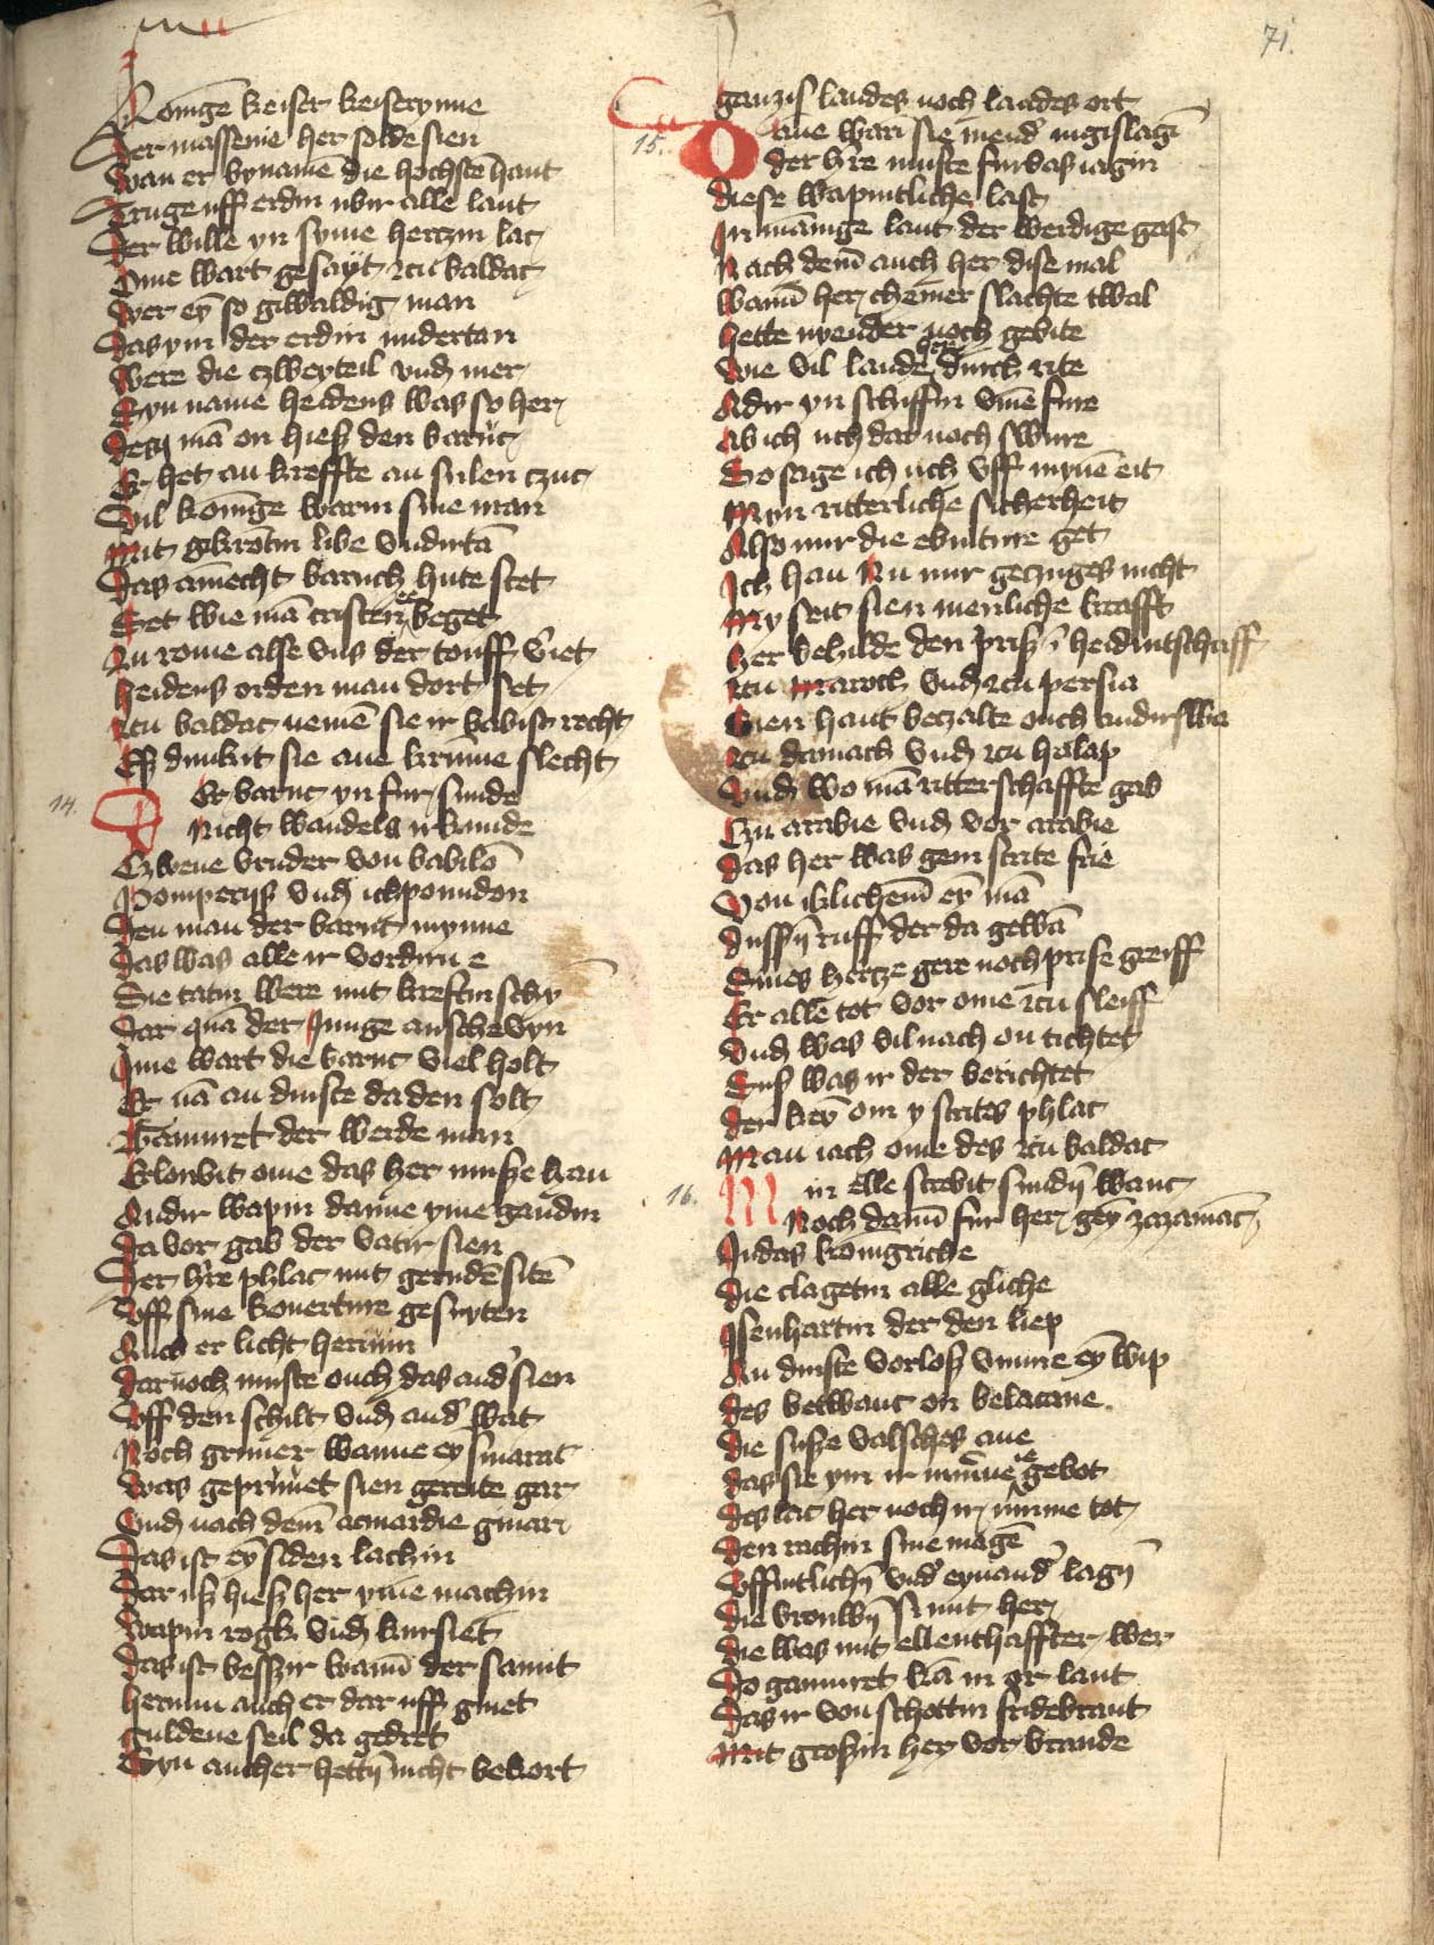 71.
Konigē keiser keiserynne
Der massenie her solde sien
Wan er bynamē die hochste hant
Truge uff erdin ubir alle lant
Der wille yn syme hertzin lac
Ome wart gesayt zcu baldac
Wer eȳ so giwaldig man
Das ym der erdin undertan
Were die czweyteil vnd mer
Syn name heidens was so her
Des mā on hiesz den baruc
Er het an kreffte an sulen czuc
Vil konīge warin sine man
Mit gekrōtin libe vndirtā
Das āmecht baruch hute stet
Set wie mā cristen ee beget
Zu rome alse vns der touff v̄iet
Heidens orden man dort set
Zcu baldac nemē sie ir babist recht
Esz dunkit sie ane krūme slecht
14.
Er baruc yn fur sunde
Nicht wandels irkunde
Czwene bruder von babilō
Pompeeysz vnd ickpomidon
Den nan der baruc nynne
Das was alle ir vordirn e
Sie tatin were mit kreftin schȳ
Dar quā der Junge anschevyn
Ime wart die baruc viel holt
Er nā an dinste da den solt
Gamuret der werde man
Erlovbit ome das her musze han
Andir wapin danne yme gandin
Da vor gab der vatir sien
Der h're phlac mit gerndē sitē
Uff sine koverture gesnyten
Anch er licht hermin
Dar noch muste ouch das and' sien
Uff den schilt vnd and' wat
Noch gruner wanne eȳ smarat
Was gepruvet sien gereite gar
Vnd nach dem̄ acmardie givar
Das ist eȳ siden lachin
Dar usz hiesz her yme machin
Wapin rogk vnd kursiet
Das ist besszir wann̄ der samit
Hermin ancher dar uff gniet
Guldene seil da gedret
Syn ancher hettȳ nicht bekort
Ganzis landes noch landes ort
15.
Dane warī sie niend' ingislagī
der h're muste furbas iagin
Diese wapintliche last
In mānige lant der werdige gast
Nach dem̄ anch her dise mal
Wann̄ her cheiner slachte twal
Hette nyender noch gebite
Wie vil lande her durch rite
Adir yn schiffin vm̄e fure
Ab ich uch dar noch swure
So sage ich uch vff mynē eit
Myn ritterliche sicherheit
Also mir die ebinture get
Ich han Nu mir geczuges nicht
My seit sien menliche krafft
Her behilde den prisz ī heidintschaff
Zcu Maroch vnd zcu persia
Sien hant beczalte ouch andirswa
Zcu damach vnd zcu halap
Vnd wo mā ritterschaffte gab
Czu arabie vnd vor arabie
Das her was gein strite frie
Von iklichem̄ eȳ mā
Dussȳ ruff der da gewā
Sines hertze gere noch prise greiff
Er allē tot vor ome zcu sleiff
Vnd was vilnach on tichtet
Susz was ir der berichtet
Der keȳ om y strites phlac
Man iach ome des zcu baldac
16.
Min elle strebit sundȳ wanc
Noch dann̄ fur her geȳ zazamāc
In das konigriche
Die clagetin alle gliche
Isenhartin der den liep
An dinste vorlosz vmme eȳ wip
Des betwanc on belacane
Die susze valsches ane
Das sie ym ir minne ie gebot
Des lac her noch ir minne tot
Den rachin sine magē
Offintlichȳ vnd' eynand' lagȳ
Die vrouwȳ si mit her
Die was mit ellenthaffter wer
Do gamuret kā in or lant
Das ir von schottin fridebrant
Mit groszin her vor brande